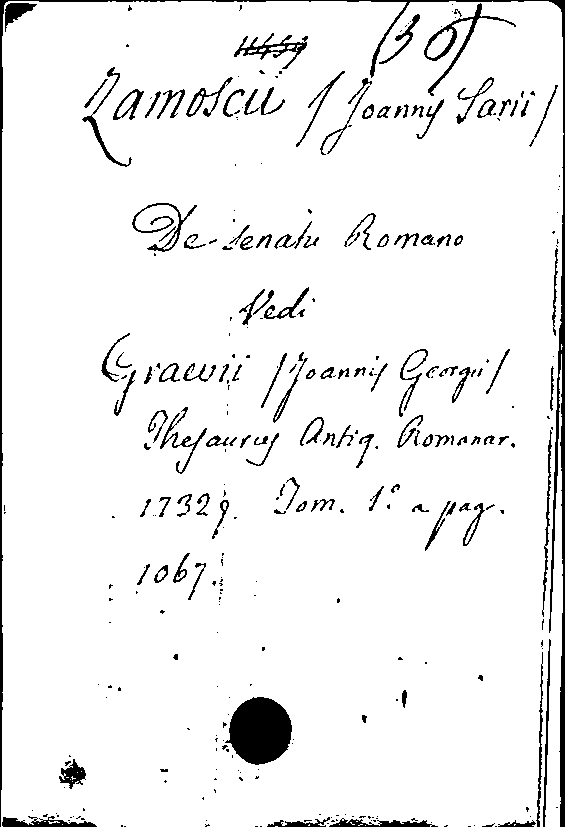 (36)
Zamoscii /Joannis Sarii/
De senatu Romano
Vedi
Graevii /Joannis Georgii/
Thesaurus Antiq. Romanar.
1732 Tom. 1º a pag.
1067.